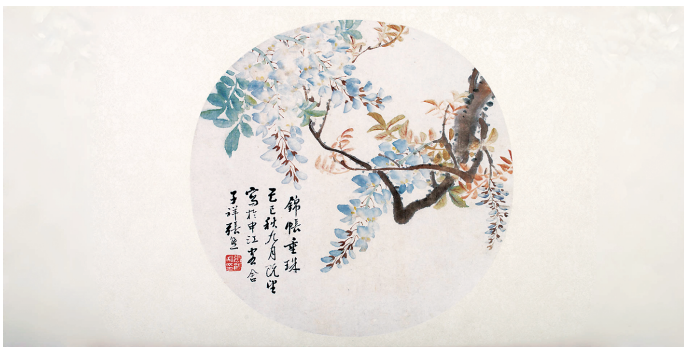 錦帳垂珠
己巳秋九月既望
寫於申江寄舍
子祥張熊